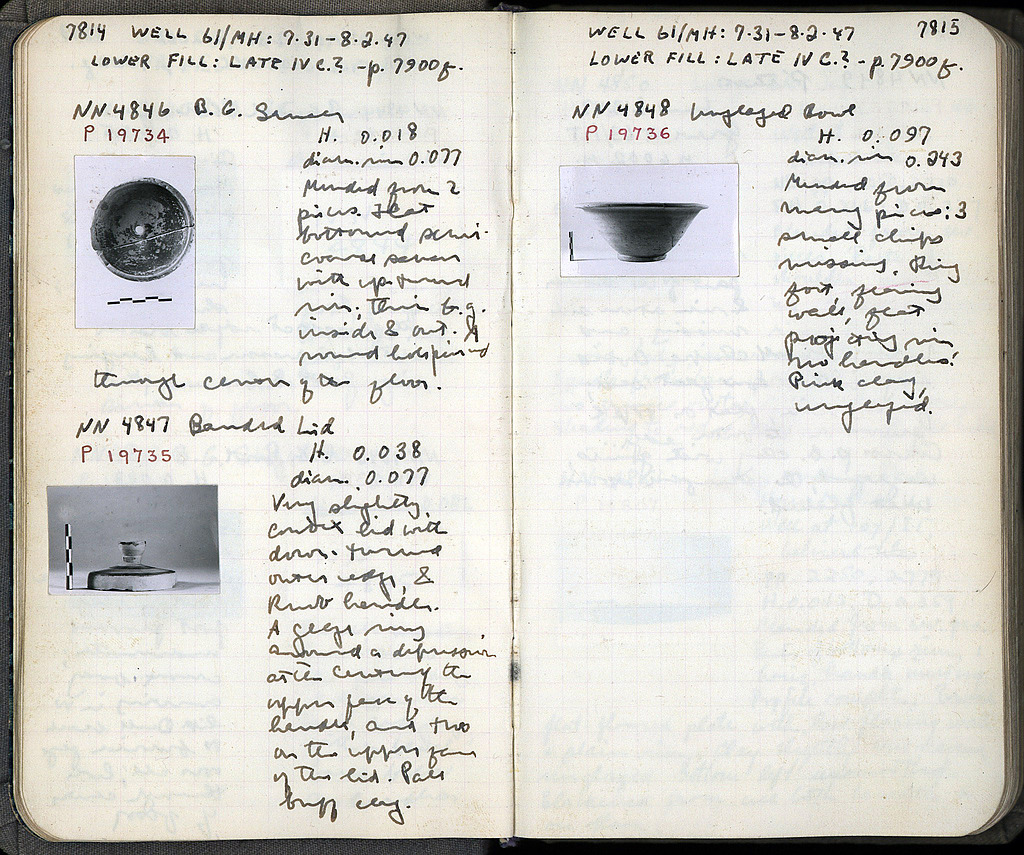 7814 WELL 61/MH: 7·31-8·2·47
LOWER FILL: LATE IV C.? -p. 7900f.
NN 4846 B. G. Saucer
P 19734 H. 0.018
diam. rim 0.077
Mended from 2
pieces. Flat
bottomed semi-
coarse saucer
with up-turned
rim; thin b.g.
inside & out. A
round hole pierced
through center of the floor.
NN 4847 Banded Lid
P 19735 H. 0.038
diam. 0.077
Very slightly
convex lid with
down-turned
outer edge, &
knob handle.
A glaze ring
around a depression
at the center of the
upper face of the
handle, and two
on the upper face
of the lid. Pale
buff clay.
WELL 61/MH: 7·31-8·2·47 7815
LOWER FILL: LATE IV C.? -p. 7900f.
NN 4848 Unglazed Bowl
P 19736 H. 0.097
diam. rim 0.243
Mended from
many pieces; 3
small chips
missing. Ring
foot, flaring
wall, flat
projecting rim
no handles.
Pink clay,
unglazed.